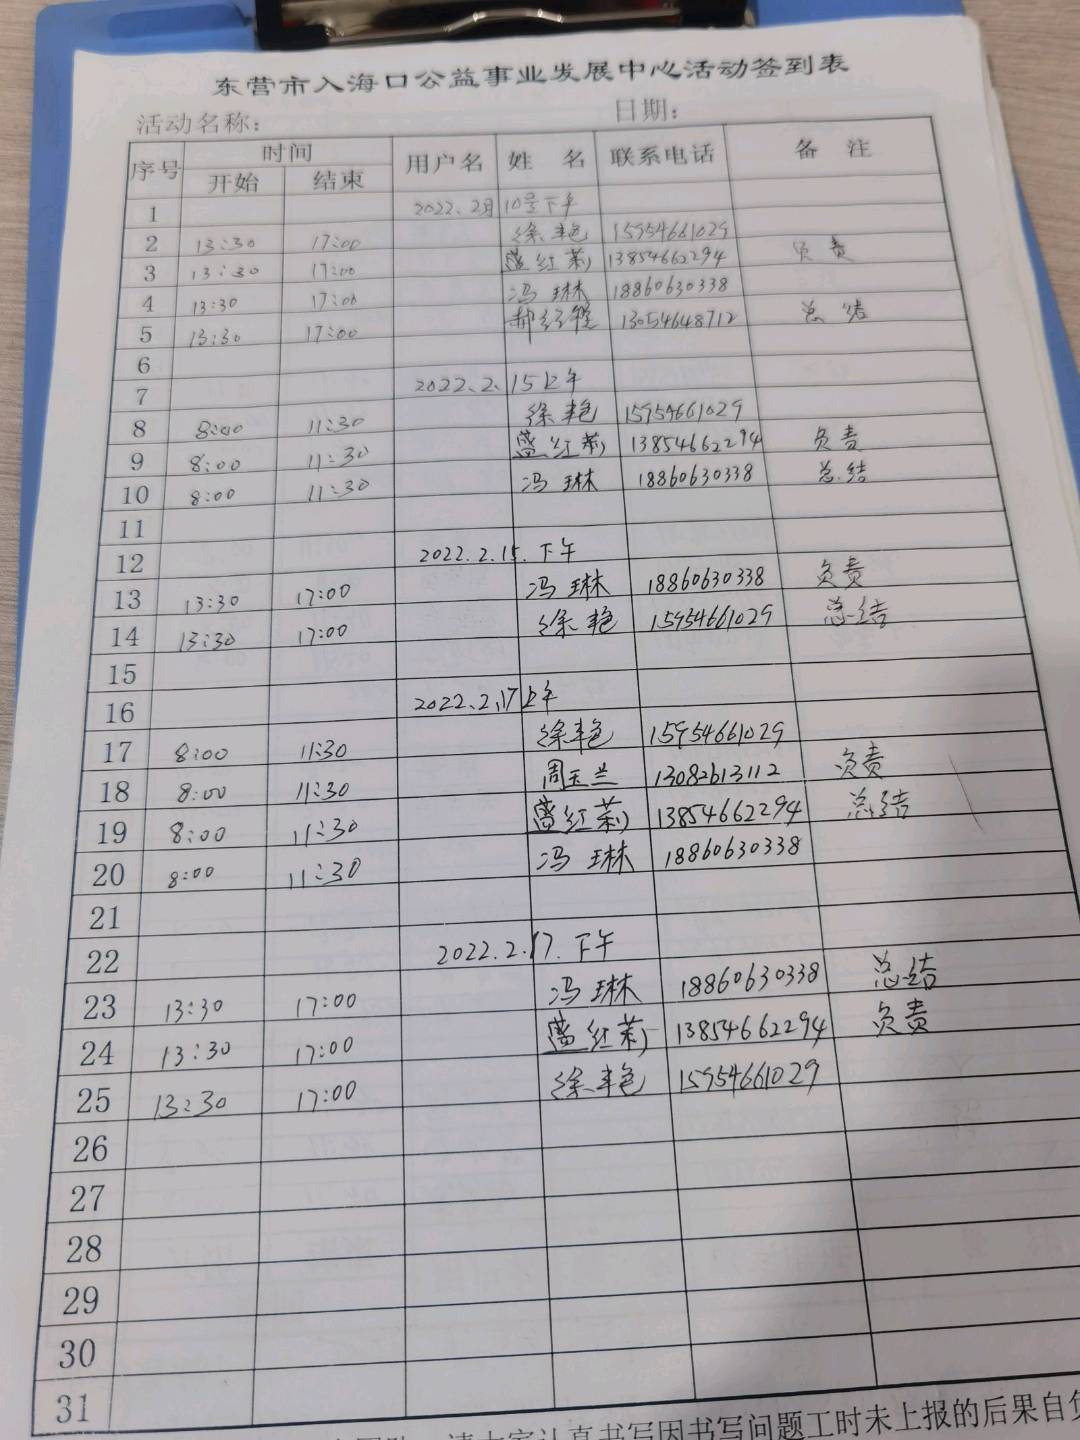 东营市入海口公益事业发展中心活动签到表
活动名称: 日期:
序号 时间 用户名 姓 名 联系电话 备 注
开始 结束
1 2022.2月10号下午
2 13:30 17:00 徐艳 15954661029
3 13:30 17:00 盛红莉 13854662294 负责
4 13:30 17:00 冯琳 18860630338
5 13:30 17:00 13054648712 总结
6
7 2022.2.15上午
8 8:00 11:30 徐艳 15954661029
9 8:00 11:30 盛红莉 13854662294 负责
10 8:00 11:30 冯琳 18860630338 总结
11
12 2022.2.15.下午
13 13:30 17:00 冯琳 18860630338 负责
14 13:30 17:00 徐艳 15954661029 总结
15
16 2022.2.17上午
17 8:00 11:30 徐艳 15954661029
18 8:00 11:30 周玉兰 13082613112 负责
19 8:00 11:30 盛红莉 13854662294 总结
20 8:00 11:30 冯琳 18860630338
21
22 2022.2.17.下午
23 13:30 17:00 冯琳 18860630338 总结
24 13:30 17:00 盛红莉 13854662294 负责
25 13:30 17:00 徐艳 15954661029
26
27
28
29
30
31
请大家认真书写因书写问题工时未上报的后果自负